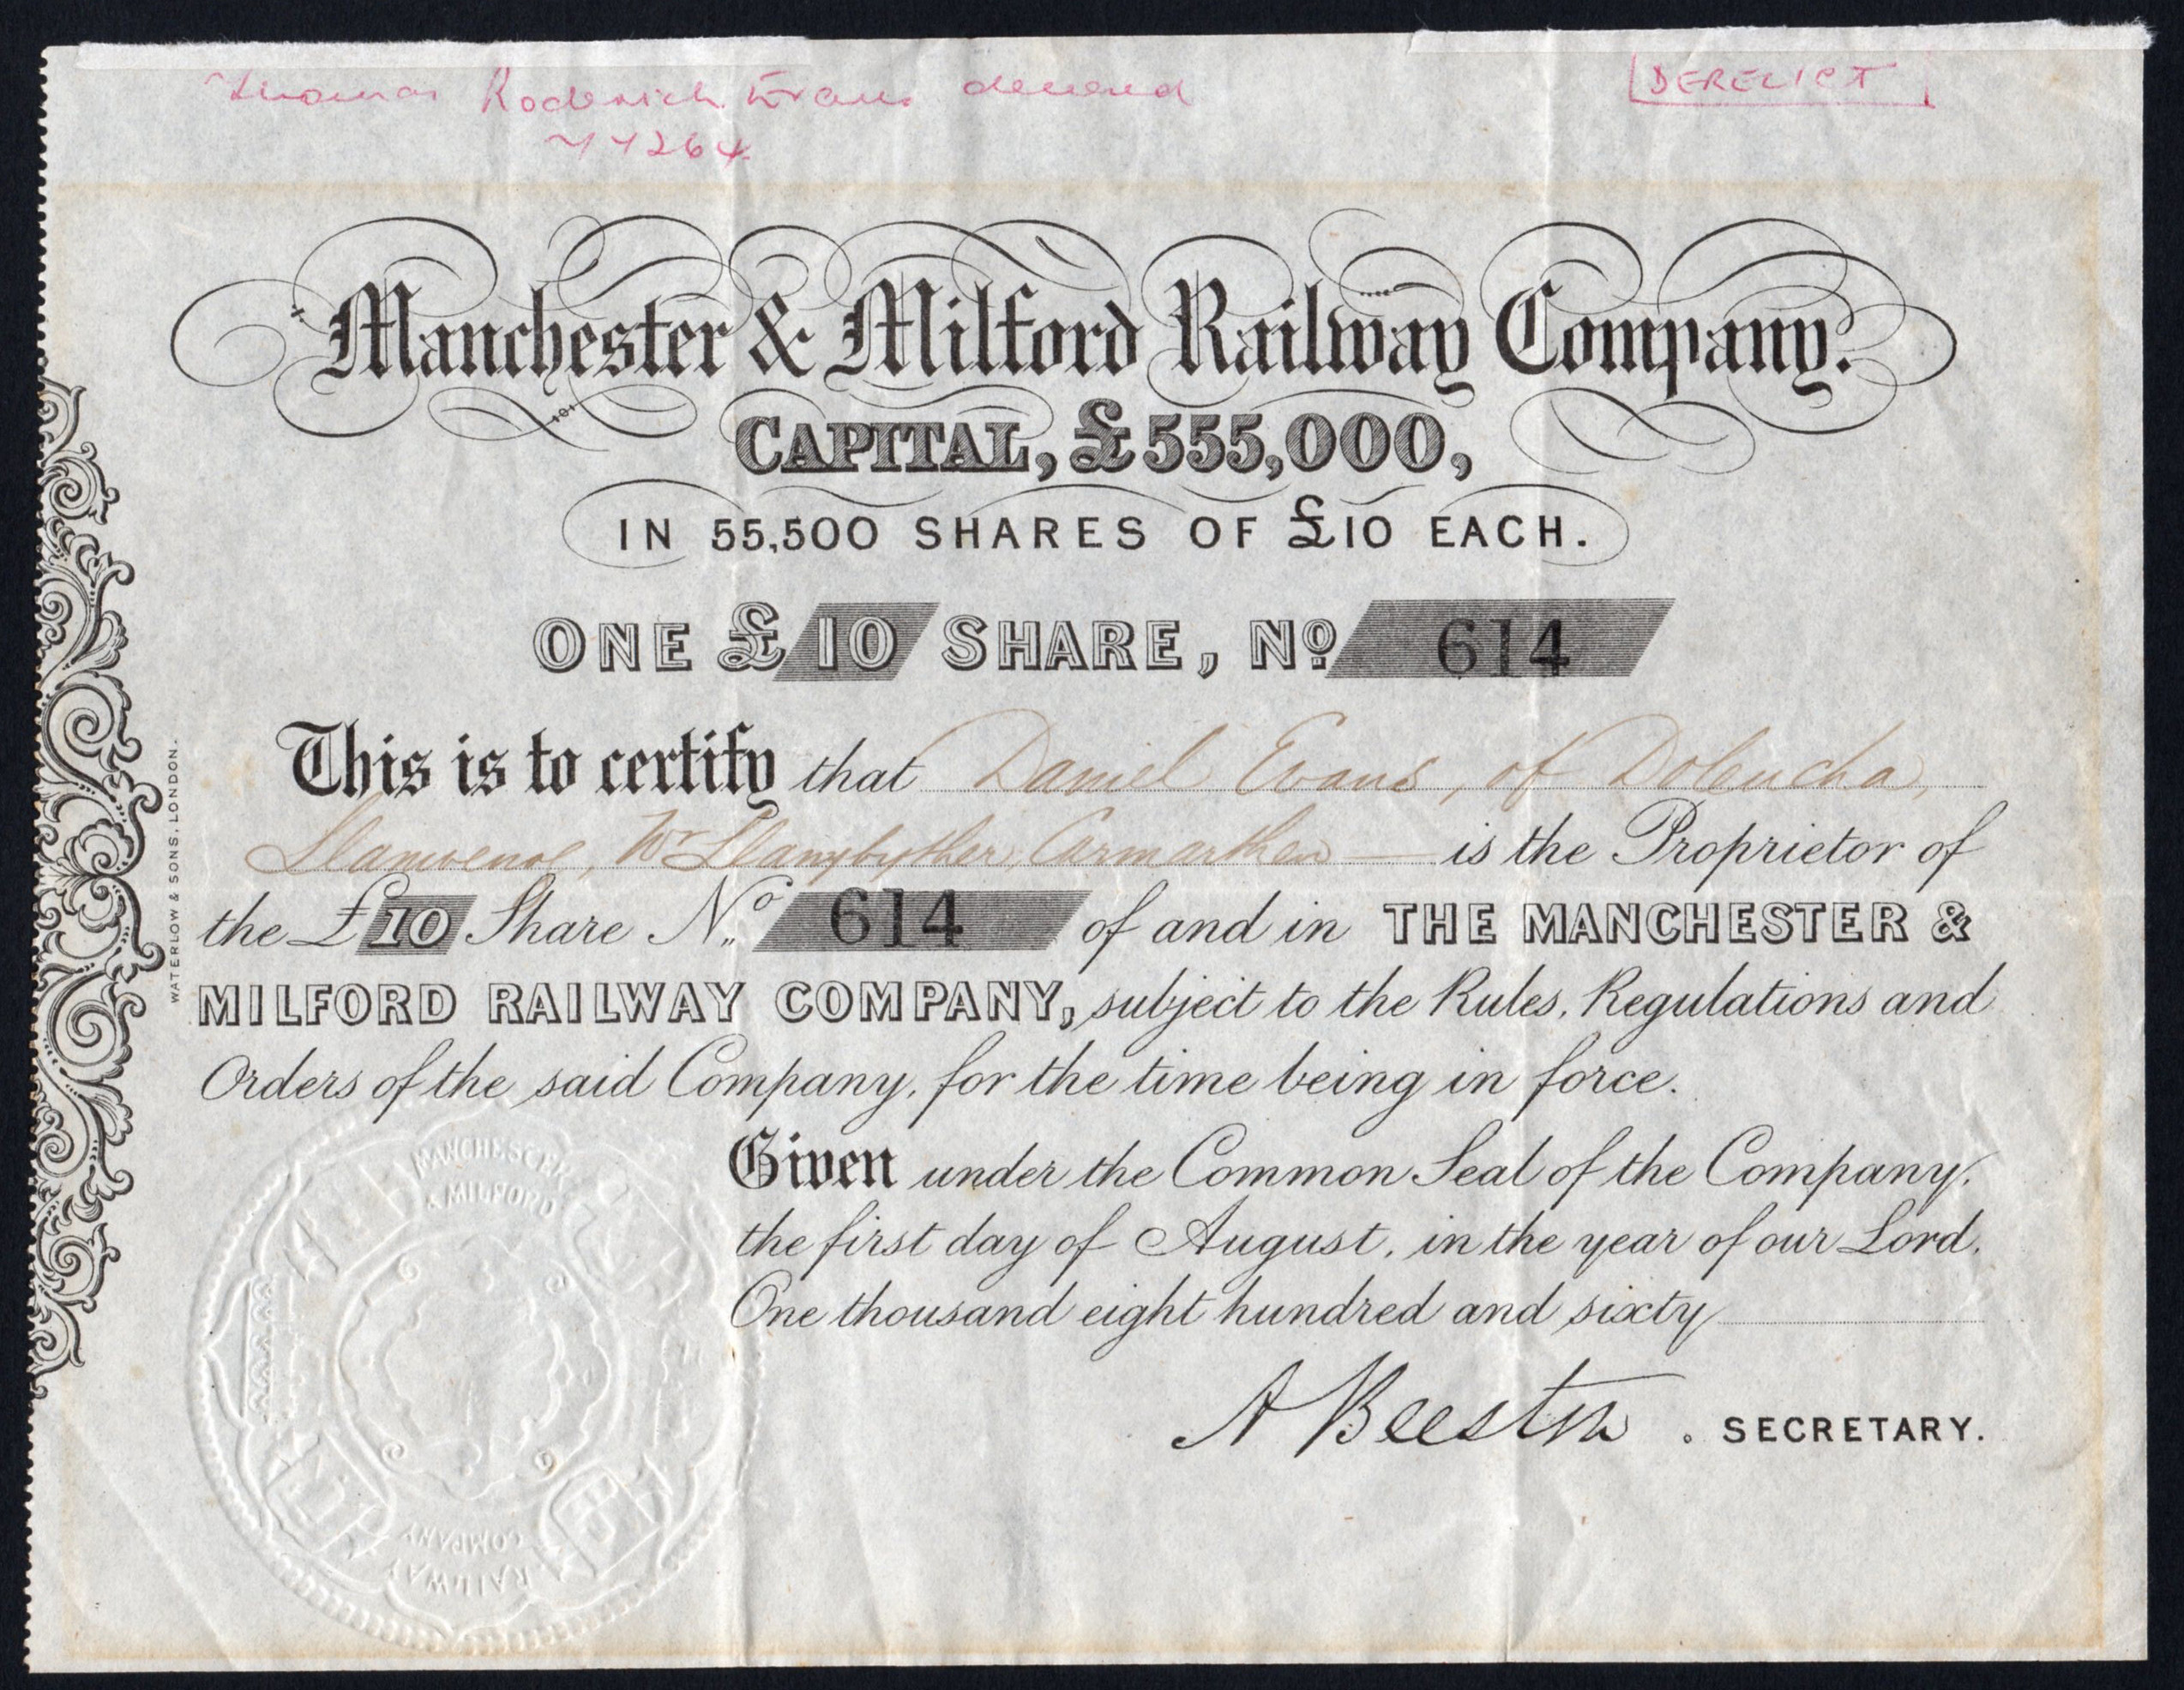 Thomas Roderick Evans deceased
[DERELICT]
Manchester & Milford Railway Company.
CAPITAL, £555,000,
IN 55,500 SHARES OF £10 EACH.
ONE £10 SHARE, No 614
This is to certify that Daniel Evans, of Doleucha,
Nr Llanybyther, Carmarthen — is the Proprietor of
the £10 Share No. 614 of and in THE MANCHESTER &
MILFORD RAILWAY COMPANY, subject to the Rules, Regulations and
Orders of the said Company, for the time being in force.
Given under the Common Seal of the Company,
the first day of August, in the year of our Lord,
One thousand eight hundred and sixty
A Beeston . SECRETARY.
WATERLOW & SONS, LONDON.
MANCHESTER
& MILFORD
RAILWAY
COMPANY